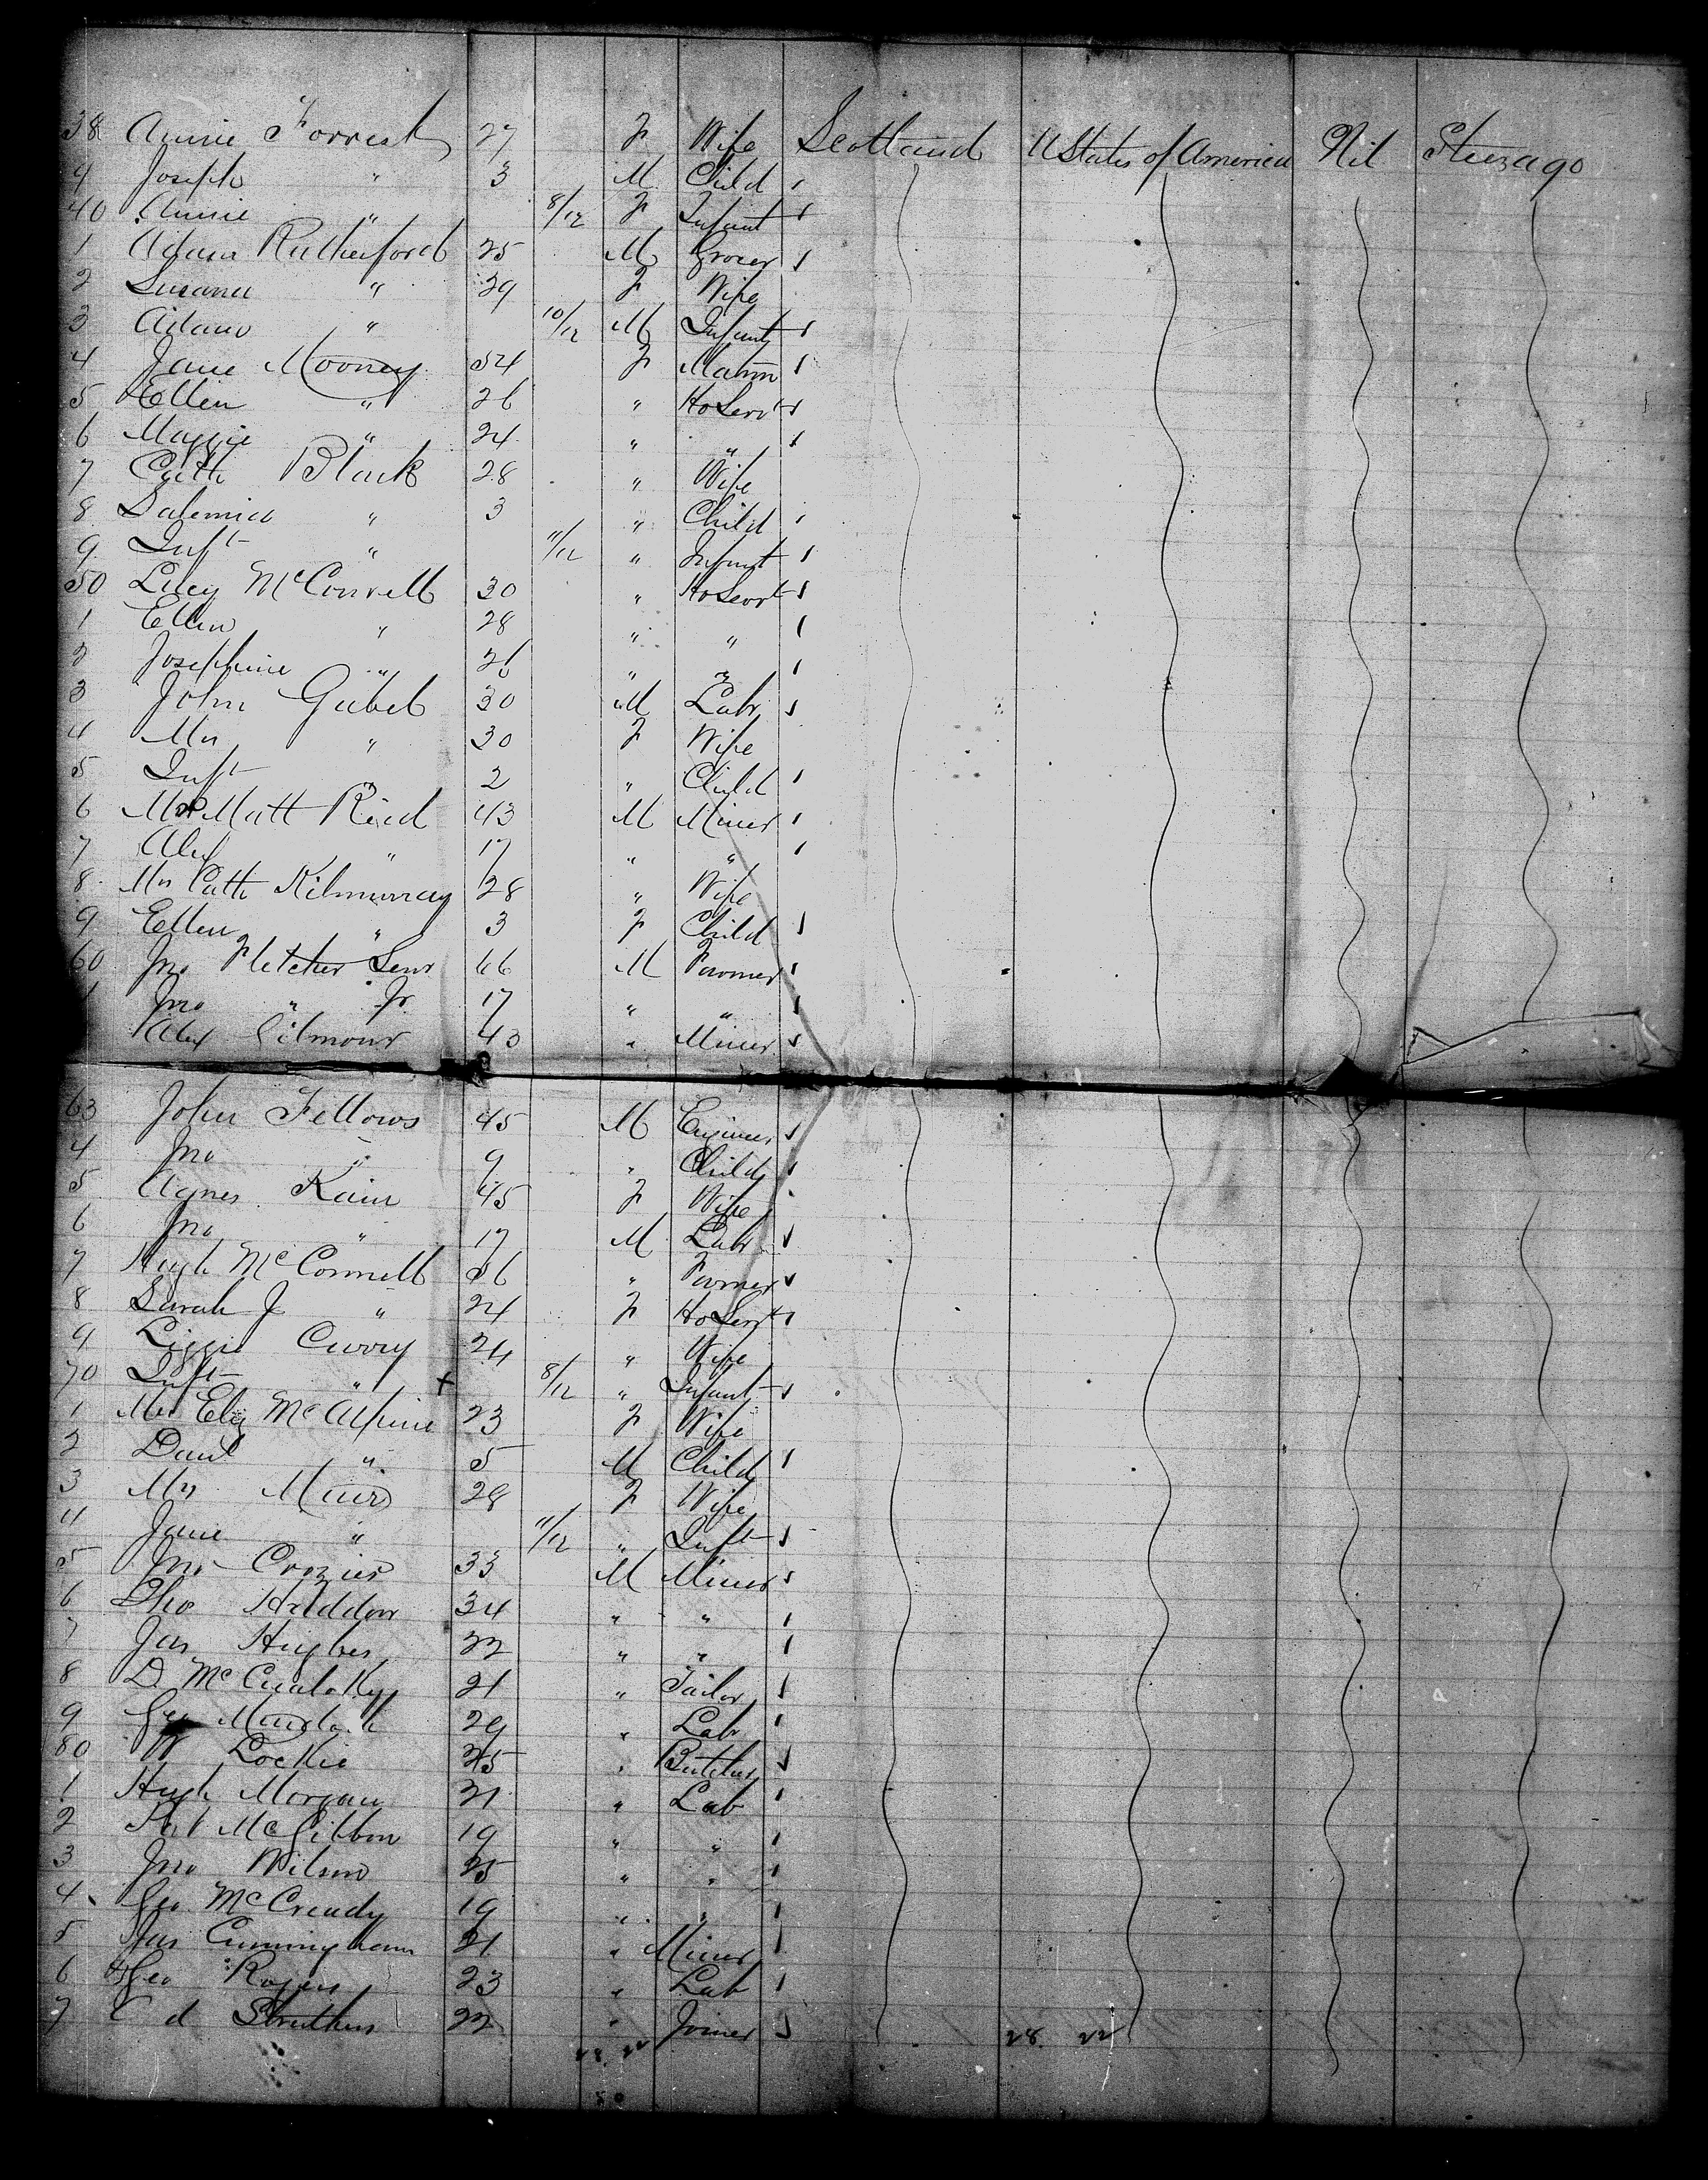 38 Annie Forrest 27 F Wife Scotland U States of America Nil Steerage
9 Joseph " 3 M Child
40 Annie " 8/12 F Infant
1 Adam Rutherford 25 M Grocer
2 Susana " 29 F Wife
3 Adam " 10/12 M Infant
4 Jane Mooney 54 F Matron
5 Ellen " 26 " Ho Servt
6 Maggie " 24 " "
7 Cath Black 28 " Wife
8 " 3 " Child
9 Inft " 11/12 " Infant
50 Lucy McConnell 30 " Ho Servt
1 Ellen " 28 " "
2 Josephine " 26 " "
3 John 30 M Labr
4 Mrs " 30 F Wife
5 Inft " 2 " Child
6 Matt Reid 43 M Miner
7 Alex " 17 " "
8 Mrs Cath Kilmurray 28 " Wife
9 Ellen " 3 F Child
60 Jno Fletcher Senr 66 M Farmer
1 Jno " Jr 17 " "
Alex Gilmour 43 " Miner
63 John Fellows 45 M Engineer
4 Jno " 9 " Child
5 Agnes Kain 45 F Wife
6 Jno " 17 M Labr
7 Hugh McConnell 56 " Farmer
8 Sarah J " 24 F Ho Servt
9 Lizzie Curry 24 " Wife
70 Inft " + 8/12 " Infant
1 Mrs Eliz McAlpine 23 F Wife
2 Danl " 5 M Child
3 Mrs Muir 28 F Wife
4 Jane " 11/12 " Inft
5 Jno Crozier 33 M Miner
6 Tho Haddow 34 " "
7 Jas Hughes 22 " "
8 D. 21 " Tailor
9 Geo 29 " Lab
80 W Lockie 25 " Butcher
1 Hugh Morgan 21 " Lab
2 McGibbon 19 " "
3 Jno Wilson 25 " "
4 Geo McCready 19 " "
5 Jas Cunningham 21 " Miner
6 Geo Rogers 23 " Lab
7 Struthers 22 " Joiner
28 22